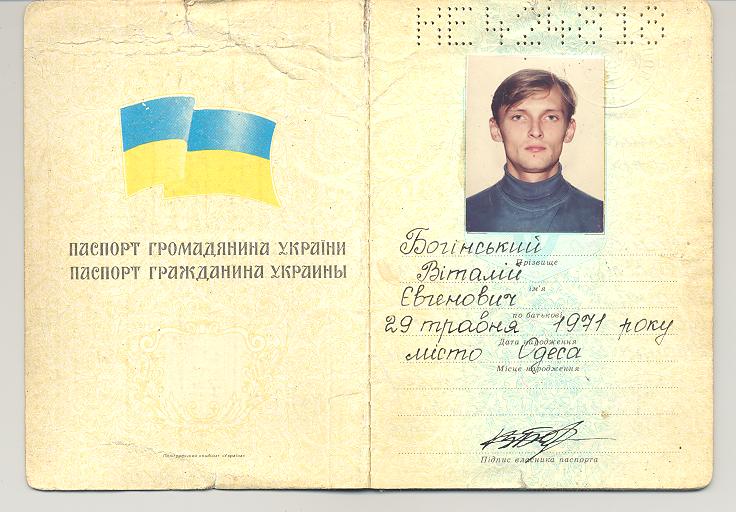 ПАСПОРТ ГРОМАДЯНИНА УКРАЇНИ
ПАСПОРТ ГРАЖДАНИНА УКРАИНЫ
Поліграфічний комбінат «Україна»
НЕ424818
Богінський
Прізвище
Віталій
ім'я
Євгенович
по батькові
29 травня 1971 року
Дата народження
місто Одеса
Місце народження
Підпис власника паспорта